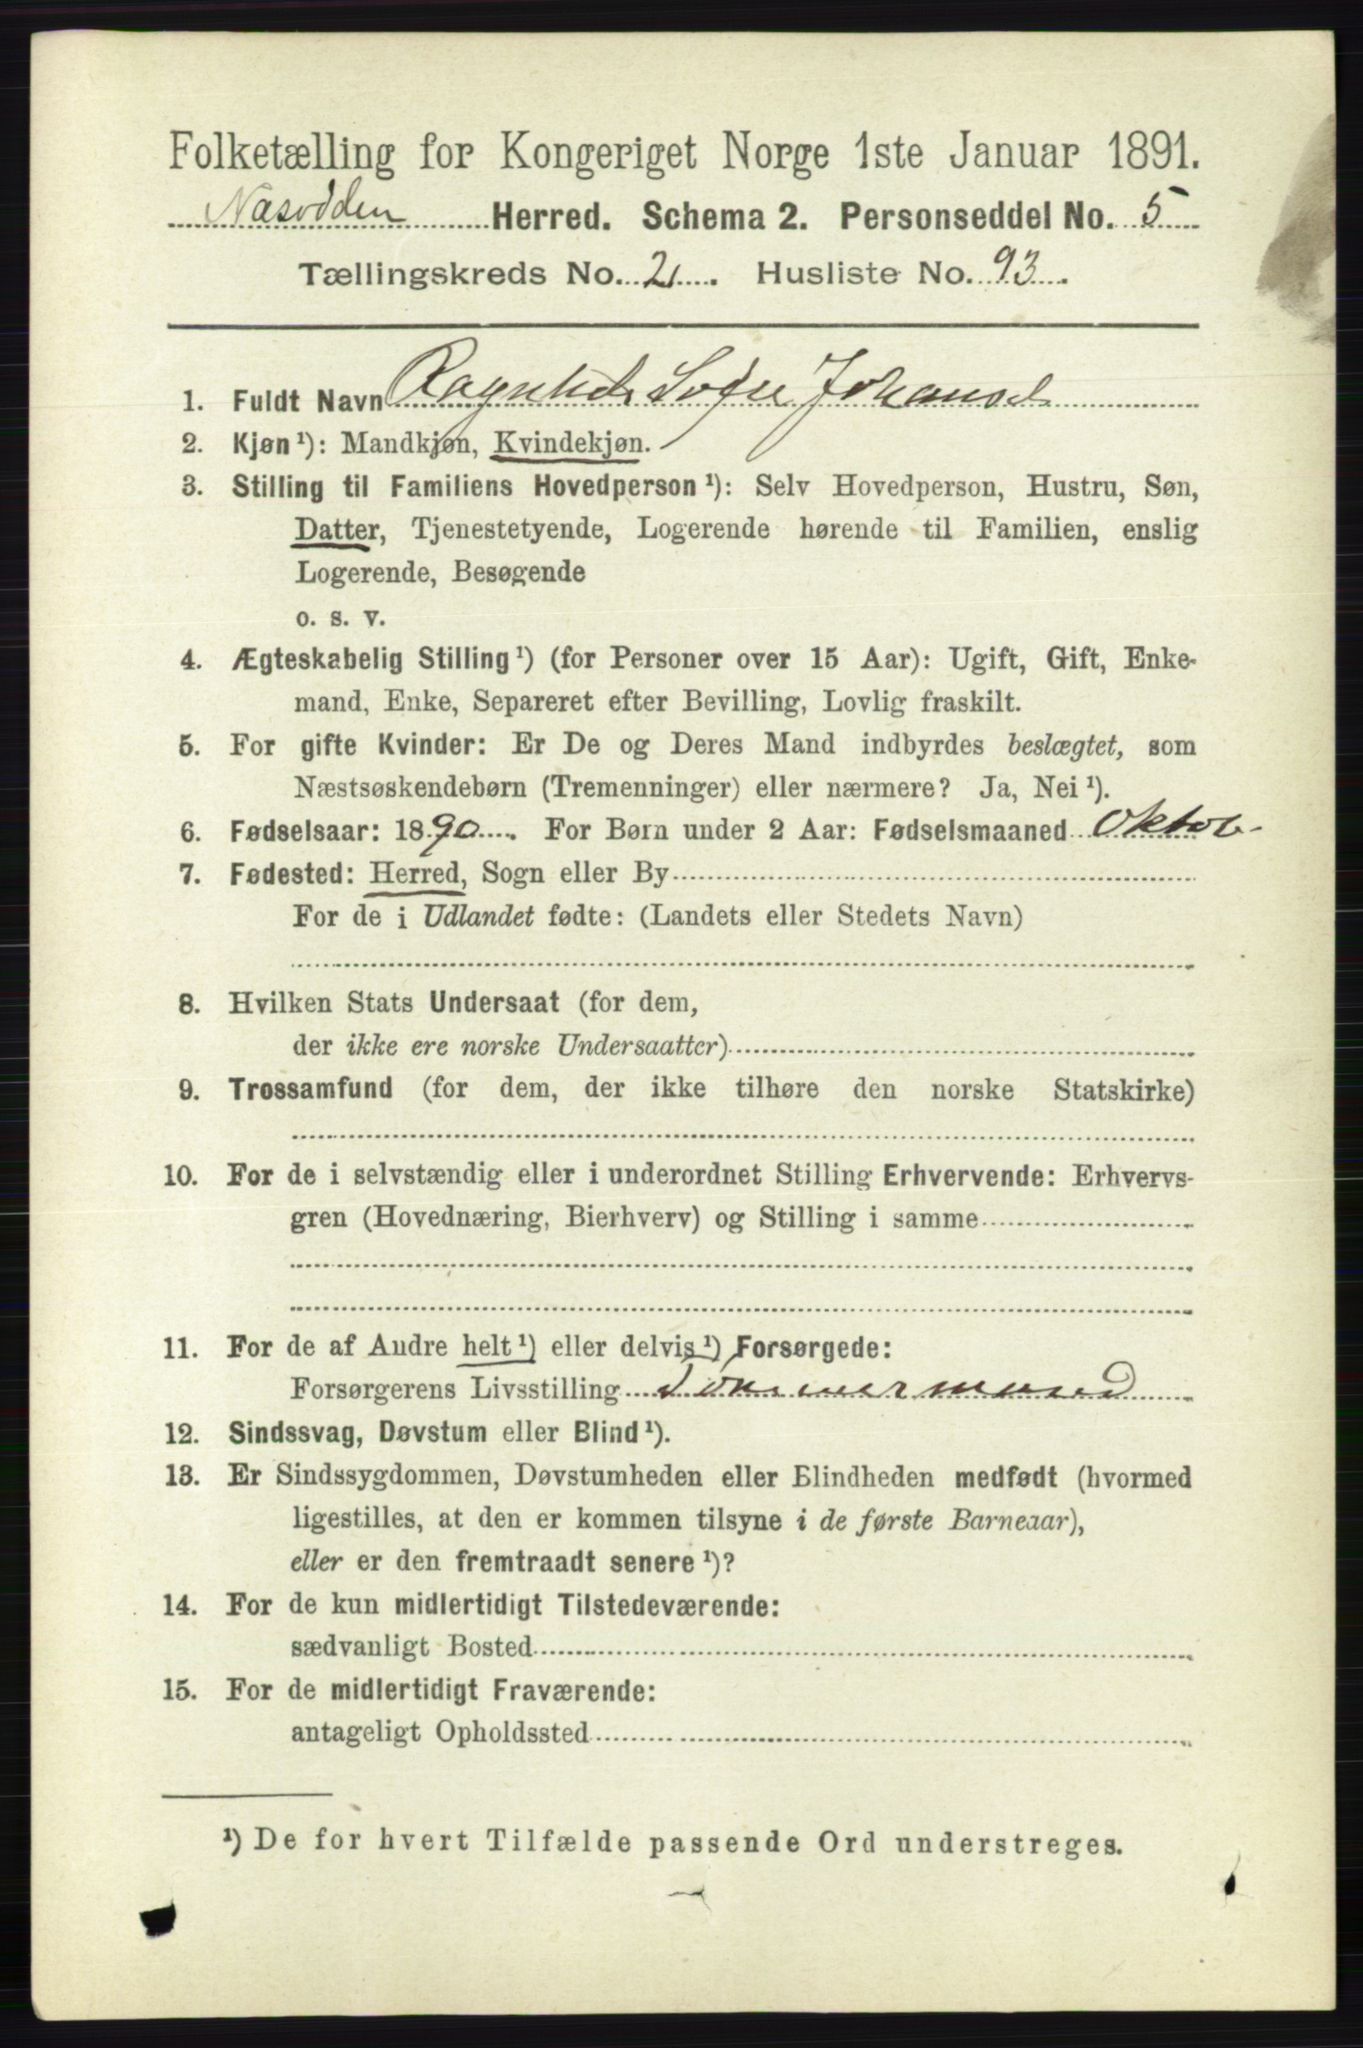 Folketælling for Kongeriget Norge 1ste Januar 1891.
Næsodden Herred. Schema 2. Personseddel No. 5
Tællingskreds No. 2. Husliste No. 93.
1. Fuldt Navn Ragnhild Sofie Johansd
2. Kjøn¹): Mandkjøn, Kvindekjøn.
3. Stilling til Familiens Hovedperson¹): Selv Hovedperson, Hustru, Søn,
Datter, Tjenestetyende, Logerende hørende til Familien, enslig
Logerende, Besøgende
o. s. v.
4. Ægteskabelig Stilling¹) (for Personer over 15 Aar): Ugift, Gift, Enke-
mand, Enke, Separeret efter Bevilling, Lovlig fraskilt.
5. For gifte Kvinder: Er De og Deres Mand indbyrdes beslægtet, som
Næstsøskendebørn (Tremenninger) eller nærmere? Ja, Nei¹).
6. Fødselsaar: 1890. For Børn under 2 Aar: Fødselsmaaned Oktob.
7. Fødested: Herred, Sogn eller By
For de i Udlandet fødte: (Landets eller Stedets Navn)
8. Hvilken Stats Undersaat (for dem,
der ikke ere norske Undersaatter)
9. Trossamfund (for dem, der ikke tilhøre den norske Statskirke)
10. For de i selvstændig eller i underordnet Stilling Erhvervende: Erhvervs-
gren (Hovednæring, Bierhverv) og Stilling i samme
11. For de af Andre helt¹) eller delvis¹) Forsørgede:
Forsørgerens Livsstilling Tømmermand
12. Sindssvag, Døvstum eller Blind¹).
13. Er Sindssygdommen, Døvstumheden eller Blindheden medfødt (hvormed
ligestilles, at den er kommen tilsyne i de første Barneaar),
eller er den fremtraadt senere¹)?
14. For de kun midlertidigt Tilstedeværende:
sædvanligt Bosted
15. For de midlertidigt Fraværende:
antageligt Opholdssted
¹) De for hvert Tilfælde passende Ord understreges.